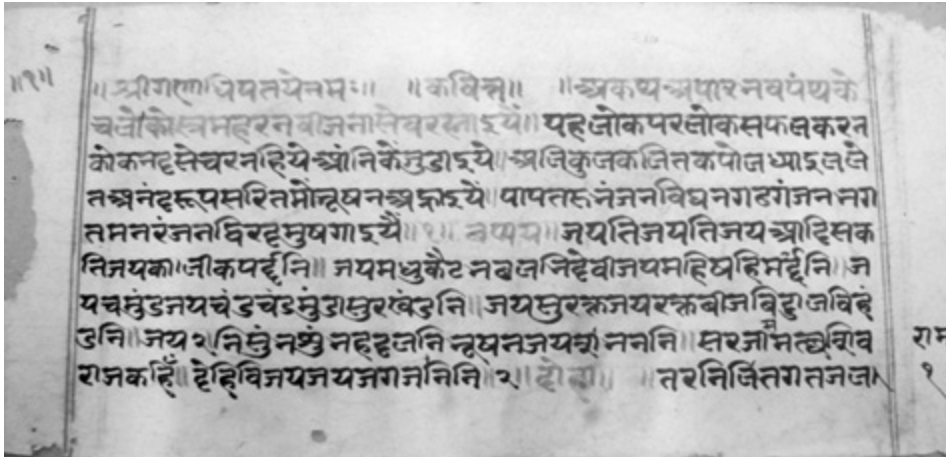 ॥१॥ ॥श्रीगणाधिपतयेनमः॥ ॥कवित्त॥ ॥अकथअपारनवपंथके
चलेकोस्रमहरनबीजनासेवरस्ताइयें॥यहलोकपरलोकसफलकरन
कोकनदसेचरनहियेआंनिकेंजुडाइयें॥अलिकुलकलितकपोलध्याइलले
तअनंदरूपसरितमोंनूषनअन्हाइयें॥पापतरुनंजनविघनगढगंजननग
तमनरंजनद्विरदमुषगाइयें॥१॥छप्पय॥जयतिजयतिजयआदिसक
तिजयकालीकपर्दनि॥जयमधुकैटनछलनिदेवीजयमहिषहिमर्दनि॥ज
यचमुंडजयचंडचंडमुंडासुरखंडनि॥जयसुरक्तजयरक्तबीजविड्डालविहं
डनि॥जय२निसुंनशुंनहदलनिनूषनजयजयननननि॥सरजासमत्थशिव
राजकहिँ॥देहिविजयजयजगजननि॥२॥दोहा॥ ॥तरनिजितगतजल
राम
१